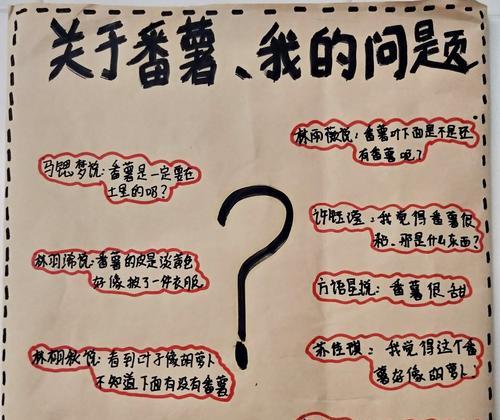 关于番薯、我的问题
马锶梦说:番薯是一定要在
土里的吗?
林羽浠说:番薯的皮是淡黄色
好像披了一件衣服
林栩秋说:看到叶子像胡萝卜
不知道下面有没有番薯
林雨薇说:番薯叶下面是不是还
有番薯呢?
许钰滢:我觉得番薯很
粘、那是什么东西?
方语星说:番薯很甜
苏佳琪:我觉得这个番
薯好像胡萝卜.